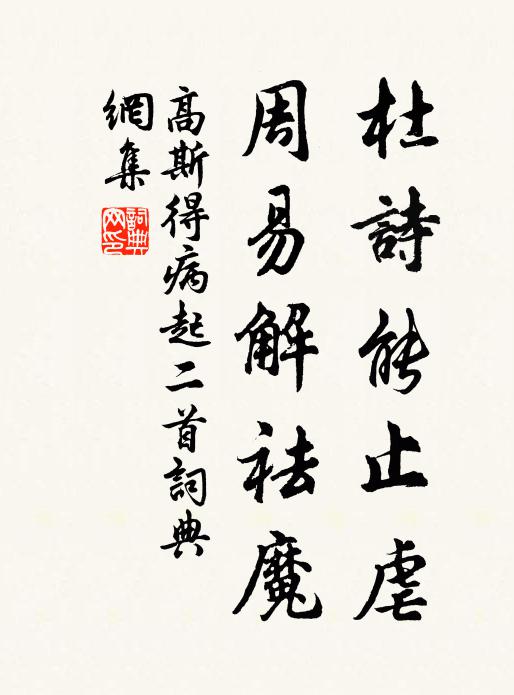 杜詩能止虐
周易解祛魔
高斯得病起二首詞典
網集
詞典网印